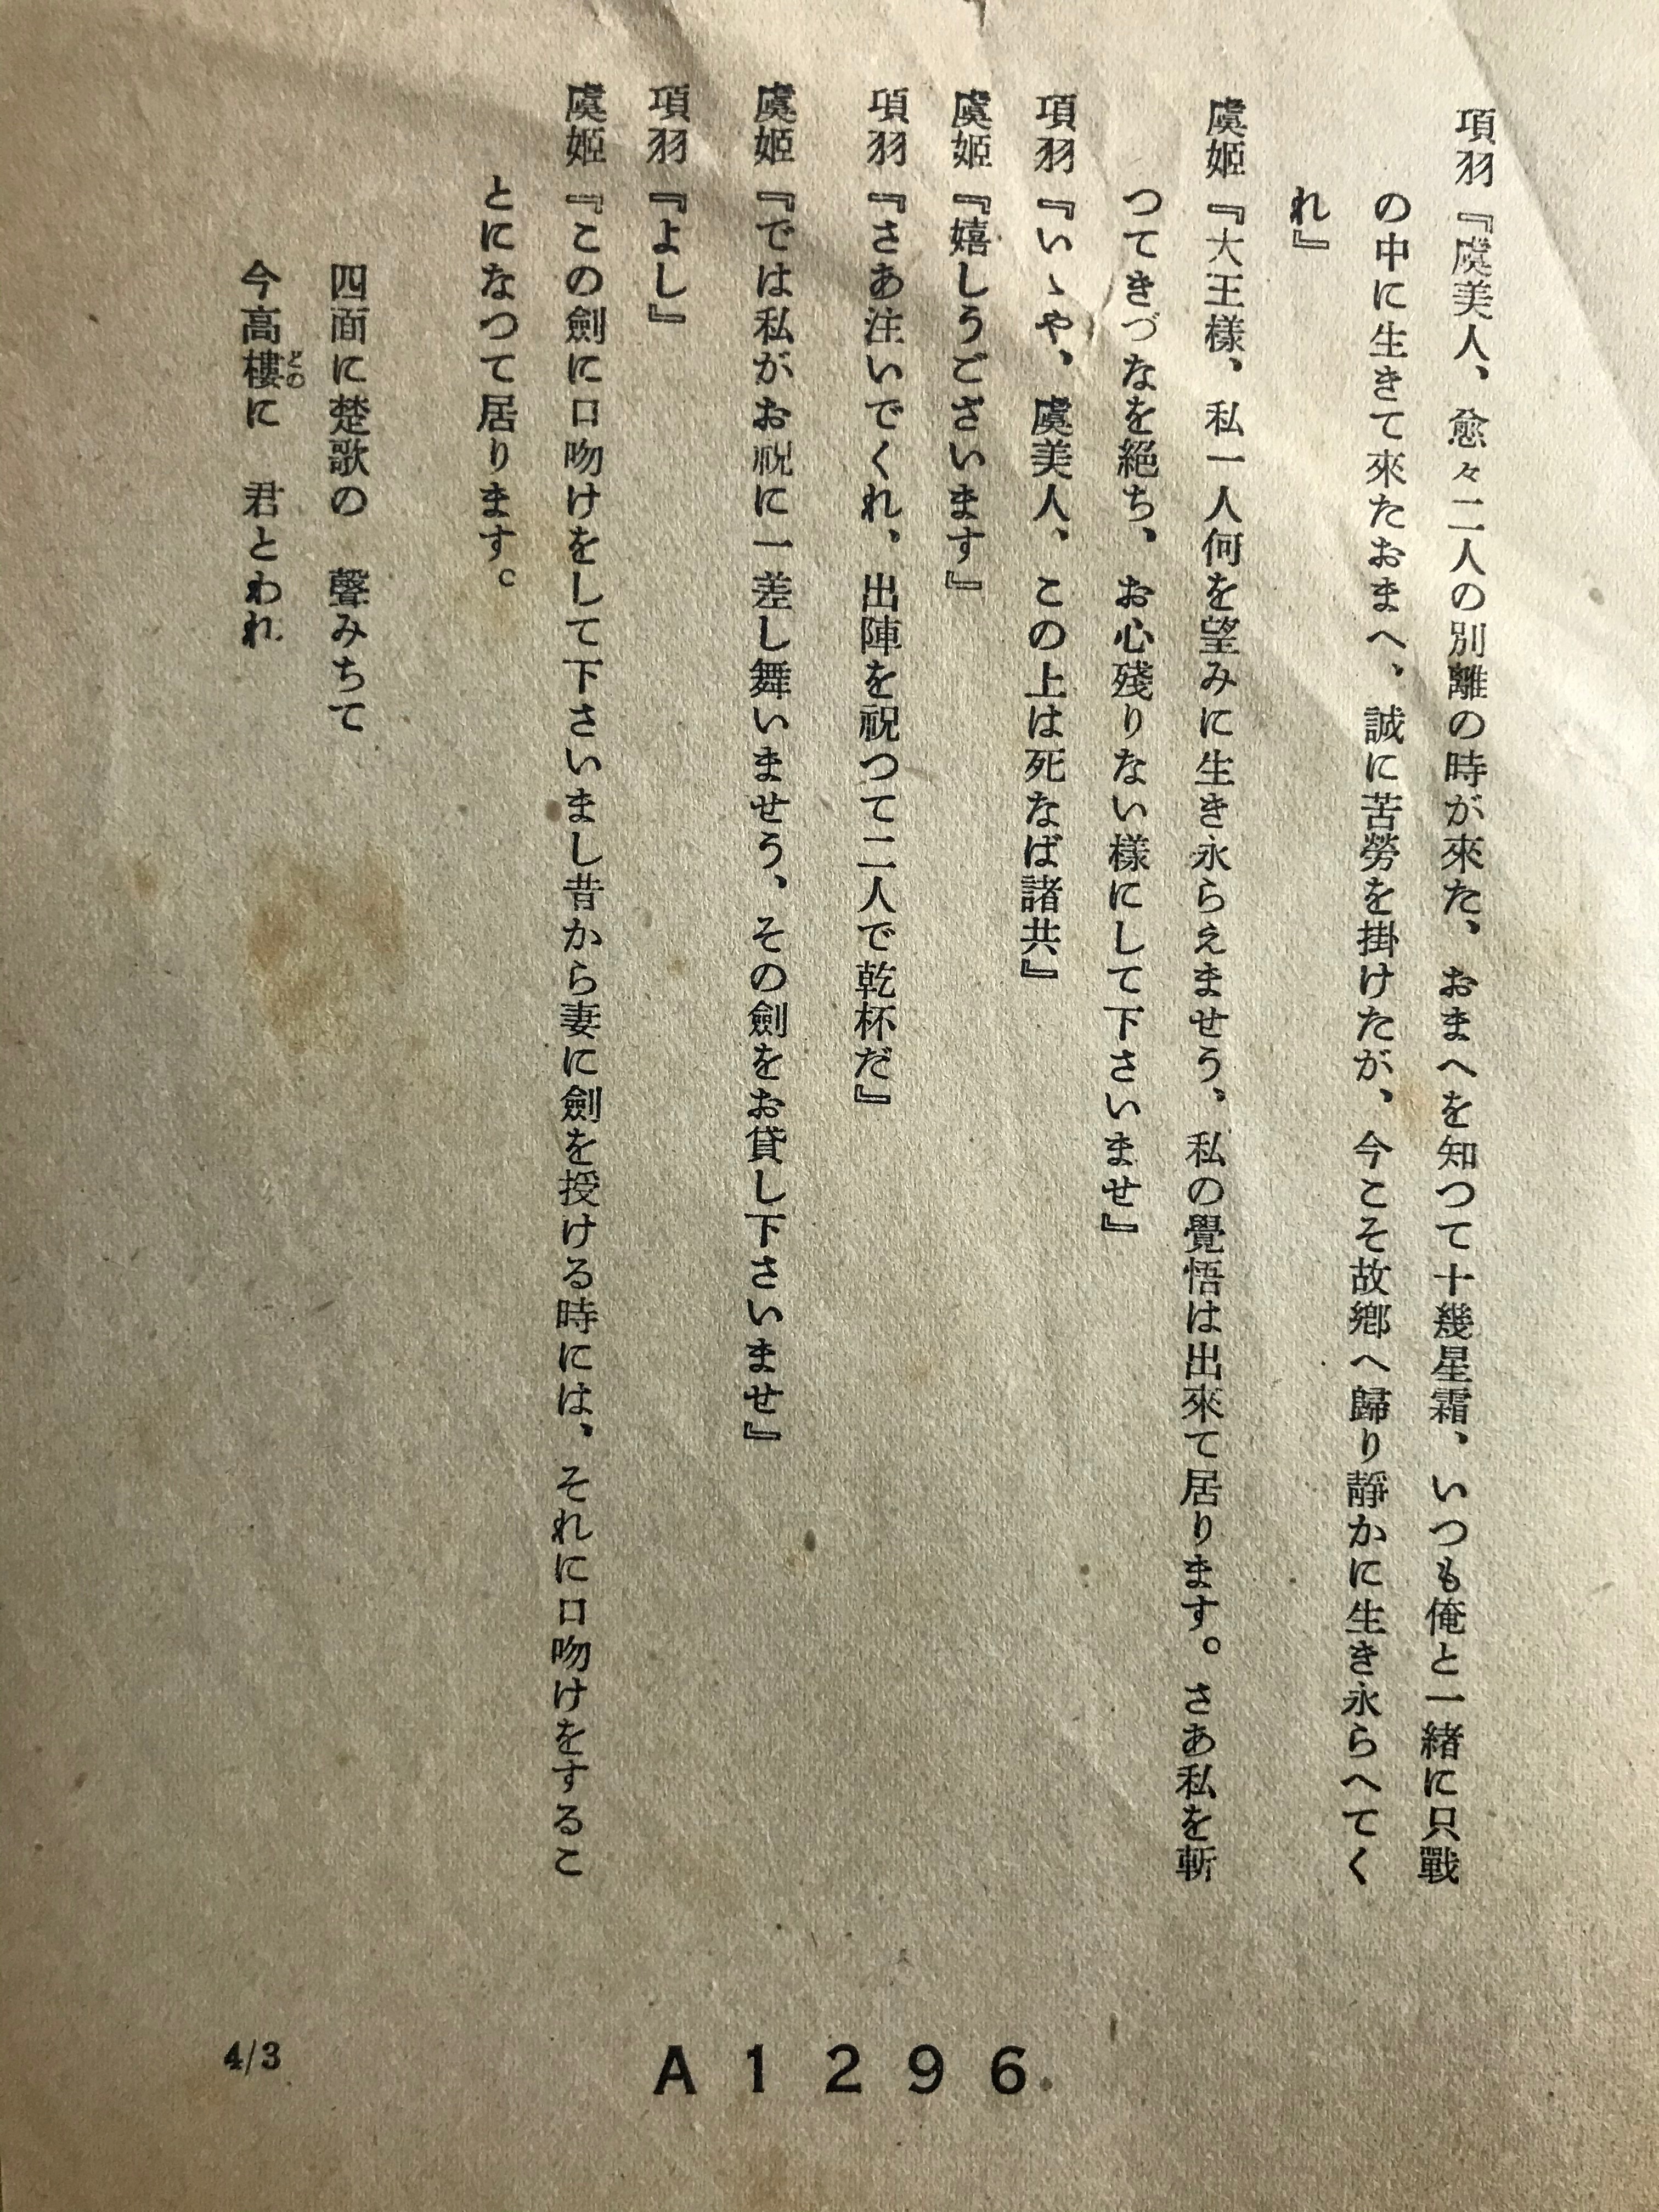 項羽『虞美人、愈々二人の別離の時が來た、おまへを知つて十幾星霜、いつも俺と一緒に只戰
の中に生きて來たおまへ、誠に苦勞を掛けたが、今こそ故鄕へ歸り靜かに生き永らへてく
れ』
虞姬『大王樣、私一人何を望みに生き永らえませう、私の覺悟は出來て居ります。さあ私を斬
つてきづなを絕ち、お心殘りない樣にして下さいませ』
項羽『いゝや、虞美人、この上は死なば諸共』
虞姬『嬉しうございます』
項羽『さあ注いでくれ、出陣を祝つて二人で乾杯だ』
虞姬『では私がお祝に一差し舞いませう、その劍をお貸し下さいませ』
項羽『よし』
虞姬『この劍に口吻けをして下さいまし昔から妻に劍を授ける時には、それに口吻けをするこ
とになつて居ります。
四面に楚歌の　聲みちて
今高樓に　君とわれ
どの
A1296
4/3